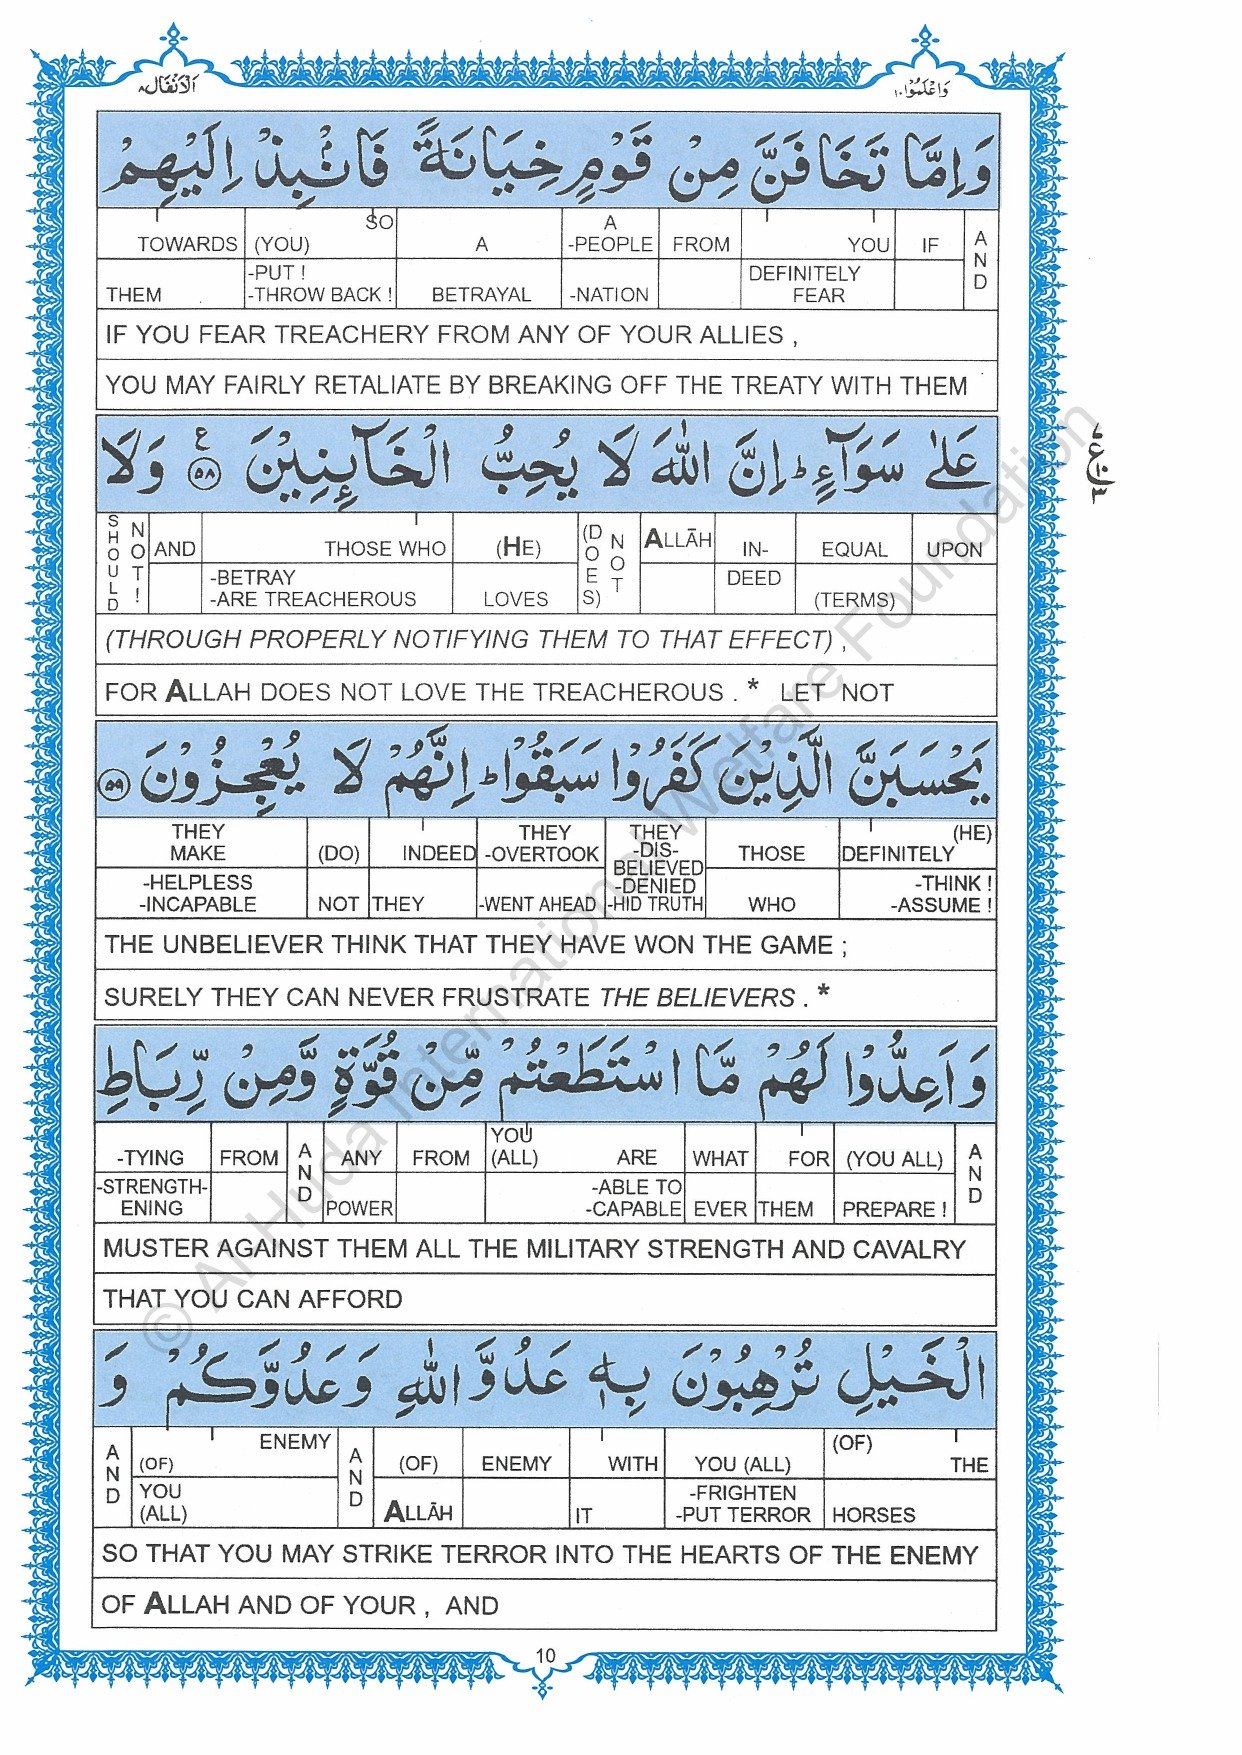 اَلْاَنْفَال٨
وَاعْلَمُوْٓا١٠
وَاِمَّا تَخَافَنَّ مِنْ قَوْمٍ خِيَانَةً فَانْۢبِذْ اِلَيْهِمْ
AND IF YOU DEFINITELY FEAR FROM A -PEOPLE -NATION A BETRAYAL SO (YOU) -PUT ! -THROW BACK ! TOWARDS THEM
IF YOU FEAR TREACHERY FROM ANY OF YOUR ALLIES ,
YOU MAY FAIRLY RETALIATE BY BREAKING OFF THE TREATY WITH THEM
عَلٰى سَوَآءٍ ؕ اِنَّ اللّٰهَ لَا يُحِبُّ الْخَآئِنِيْنَ ﴿٥٨﴾ ع وَلَا
UPON EQUAL (TERMS) IN- DEED ALLĀH (DOES) NOT (HE) LOVES THOSE WHO -BETRAY -ARE TREACHEROUS AND SHOULD NOT !
(THROUGH PROPERLY NOTIFYING THEM TO THAT EFFECT) ,
FOR ALLAH DOES NOT LOVE THE TREACHEROUS . * LET NOT
يَحْسَبَنَّ الَّذِيْنَ كَفَرُوْا سَبَقُوْا ؕ اِنَّهُمْ لَا يُعْجِزُوْنَ ﴿٥٩﴾
(HE) DEFINITELY -THINK ! -ASSUME ! THOSE WHO THEY -DIS- BELIEVED -DENIED -HID TRUTH THEY -OVERTOOK -WENT AHEAD INDEED THEY (DO) NOT THEY MAKE -HELPLESS -INCAPABLE
THE UNBELIEVER THINK THAT THEY HAVE WON THE GAME ;
SURELY THEY CAN NEVER FRUSTRATE THE BELIEVERS . *
وَاَعِدُّوْا لَهُمْ مَّا اسْتَطَعْتُمْ مِّنْ قُوَّةٍ وَّمِنْ رِّبَاطِ
AND (YOU ALL) PREPARE ! FOR THEM WHAT EVER YOU (ALL) ARE -ABLE TO -CAPABLE FROM ANY POWER AND FROM -TYING -STRENGTH- ENING
MUSTER AGAINST THEM ALL THE MILITARY STRENGTH AND CAVALRY
THAT YOU CAN AFFORD
الْخَيْلِ تُرْهِبُوْنَ بِهٖ عَدُوَّ اللّٰهِ وَعَدُوَّكُمْ وَ
(OF) THE HORSES YOU (ALL) -FRIGHTEN -PUT TERROR WITH IT ENEMY (OF) ALLĀH AND ENEMY (OF) YOU (ALL) AND
SO THAT YOU MAY STRIKE TERROR INTO THE HEARTS OF THE ENEMY
OF ALLAH AND OF YOUR , AND
10
© Al Huda International Welfare Foundation